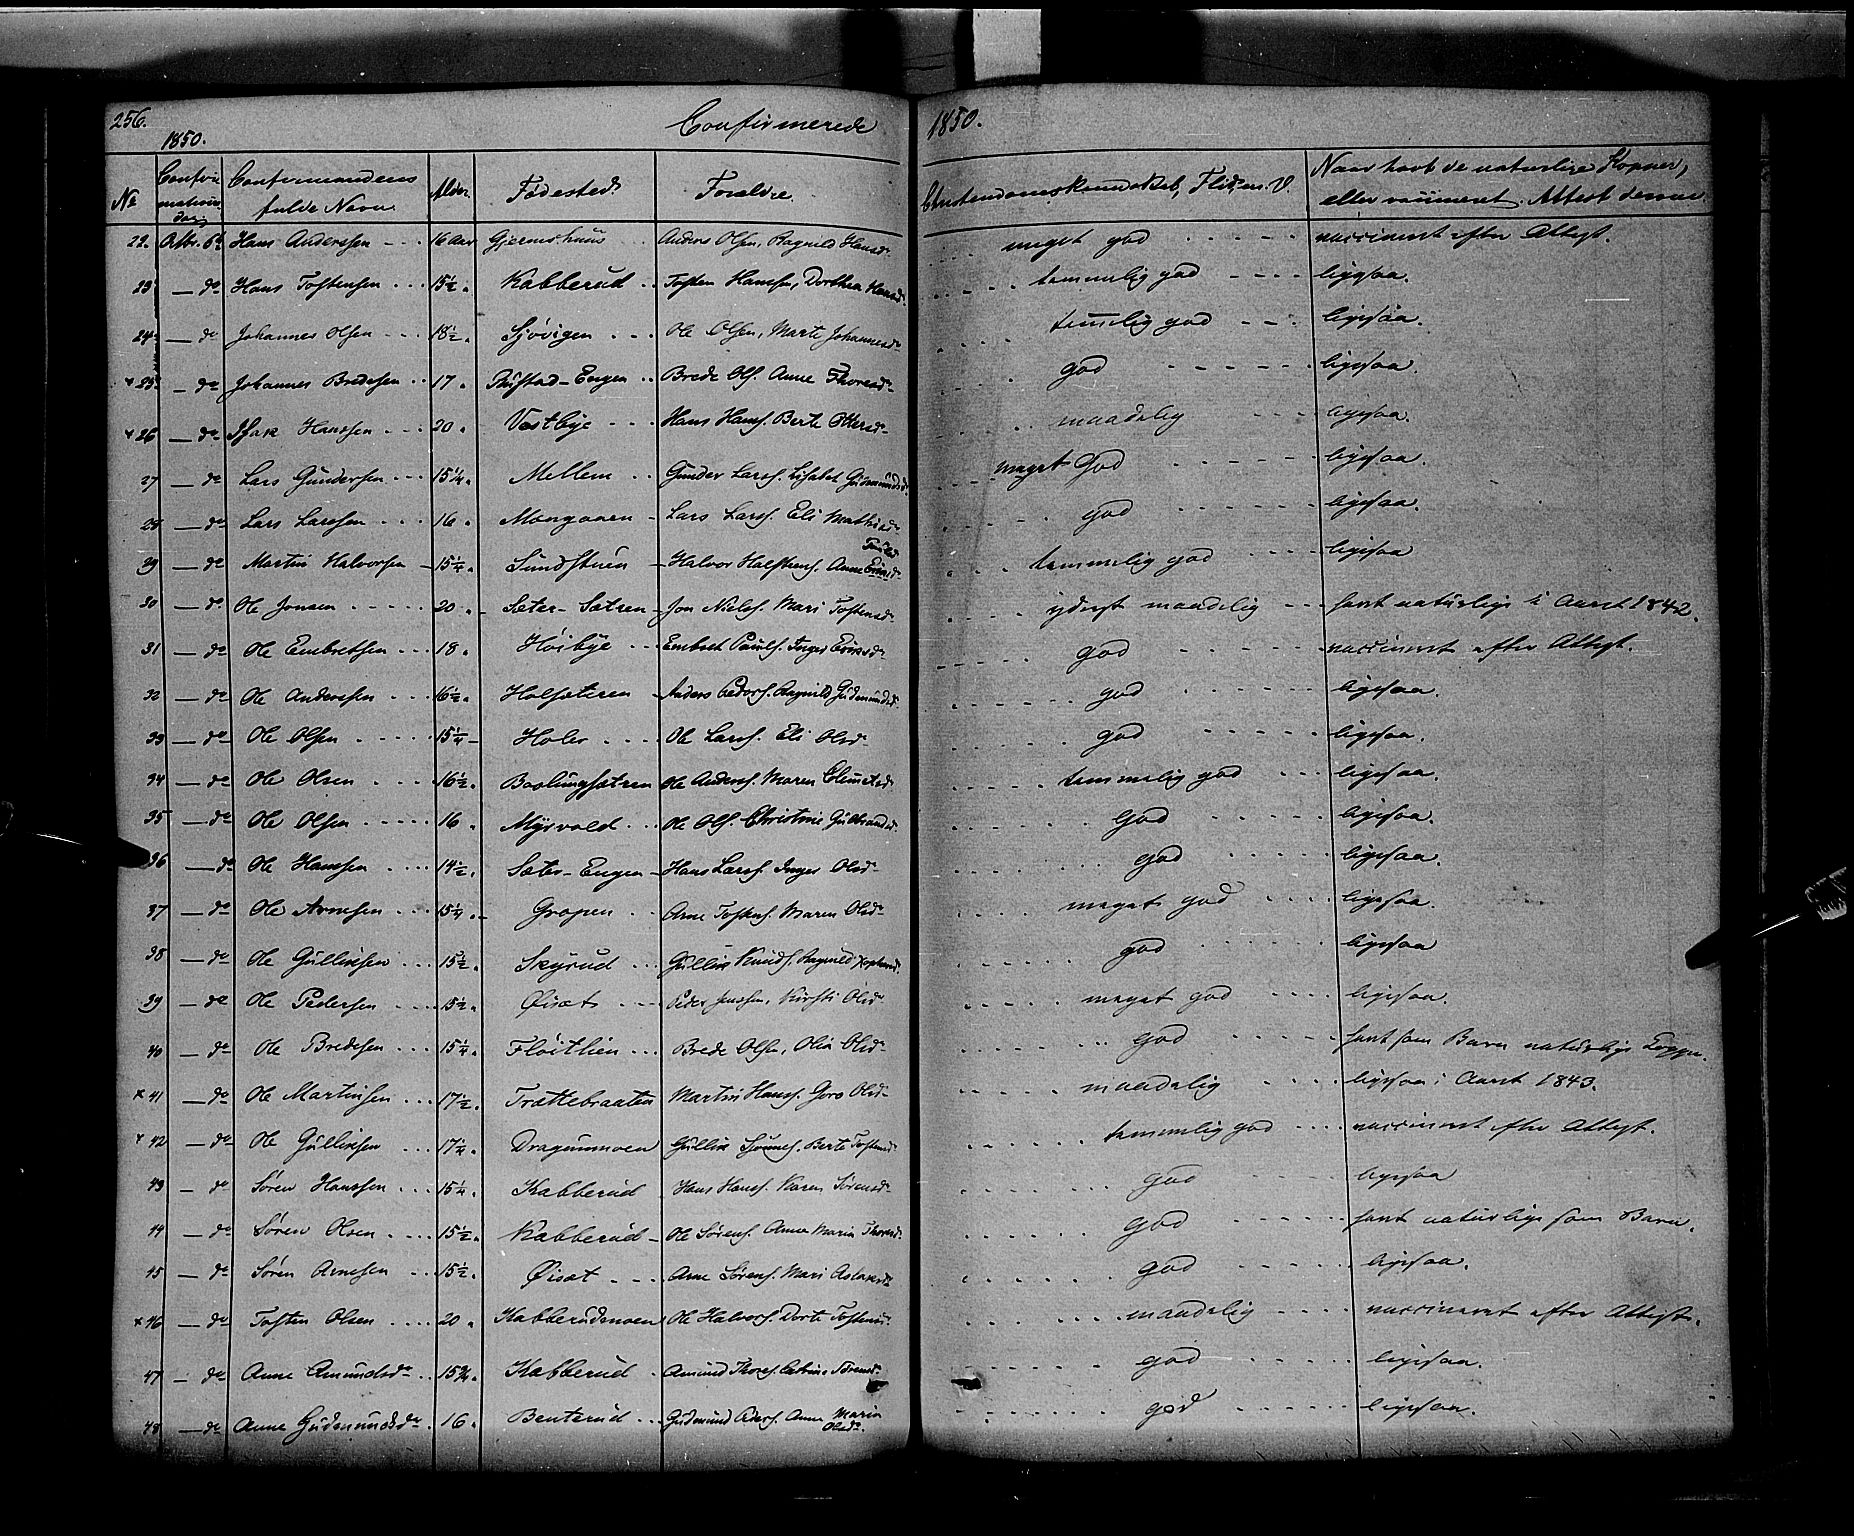 256. 1850. Confirmerede 1850.
No Confirmations dag Confirmandens fulde Navn. Alder Fødested Forældre. Christendomskundskab, Flid m. V. Naar havt de naturlige Kopper, eller vaccineret. Attest derom
22. Octbr. 6te Hans Anderssen 16 Aar Gjermshuus Anders Olsen, Ragnild Hansd. meget god vaccineret efter Attest.
23 do Hans Tostensen 15½ Kabberud Tosten Hansen, Dorthea Hansd. temmelig god ligesaa.
24 do Johannes Olsen 18½ Sjøvigen Ole Olsen, Marte Johannesd. temmelig god ligesaa.
×25 do Johannes Bredesen 17 Brede Ols. Anne Thoresd. god ligesaa.
×26 do Isak Hanssen 20 Vestbye Hans Hans. Berte maadelig ligesaa.
27 do Lars Gundersen 15¼ Mellem Gunder Larss. Lisabet Gudmundsd. meget God ligesaa.
28 do Lars Larssen 16 Lars Larss. Eli Mathisd. god ligesaa.
29 do Martin Halvorsen 15¼ Sundstuen Halvor Anne temmelig god ligesaa
30 do Ole Jonsen 20 Sæter-Sætren Jon Niels. Mari Tostensd. yderst maadelig havt naturlige i Aaret 1842.
31 do Ole Embretsen 18 Høibye Embret Pauls. Inger Eriksd. god vaccineret efter Attest.
32 do Ole Anderssen 16½ Anders Peders. Ragnild Gudmundsd. god ligesaa.
33 do Ole Olsen 15¼ Holer Ole Larss. Eli Olsd. god ligesaa.
34 do Ole Olsen 16½ Ole Anders. Maren temmelig god ligesaa.
35 do Ole Olsen 16 Myrvold Ole Ols. Christine Gulbrandsd. God ligesaa.
36 do Ole Hanssen 14½ Sæter-Engen Hans Larss. Inger Olsd. god ligesaa.
37 do Ole Arnesen 15¼ Gropen Arne Tostens. Maren Olsd. meget god ligesaa.
38 do Ole Gulliksen 15½ Skyrud Gullik Knuds. Ragnild god ligesaa
39 do Ole Pedersen 15½ Øiset Peder Jensen, Kirsti Olsd. meget god ligesaa.
40 do Ole Bredesen 15¼ Fløitlien Brede Olsen, Olia Olsd. god havt som Barn naturlige Kopper.
×41 do Ole Martinsen 17½ Trættebraaten Martin Hans. Goro Olsd. maadelig ligesaa i Aaret 1843.
×42 do Ole Gulliksen 17¼ Dragummoen Gullik Berte Tostensd. temmelig god vaccineret efter Attest.
43 do Søren Hanssen 15¼ Kabberud Hans Hans. Karen Sørensd. god ligesaa
44 do Søren Olsen 15½ Kabberud Ole Sørens. Anne Maria Thoresd. god havt naturlige som Barn.
45 do Søren Arnesen 15½ Øiset Arne Sørens. Mari Aslaksd. god ligesaa.
×46 do Tosten Olsen 20 Kabberudmoen Ole Halvors. Dorte Tostensd. maadelig vaccineret efter Attest.
47 do Anne Amundsdr. 15¾ Kabberud Amund Thores. Cathrine Sørensd. god ligesaa.
48 do Anne Gudmundsdr. 16 Benterud Gudmund Peders. Anne Maria Olsdr. god ligesaa.